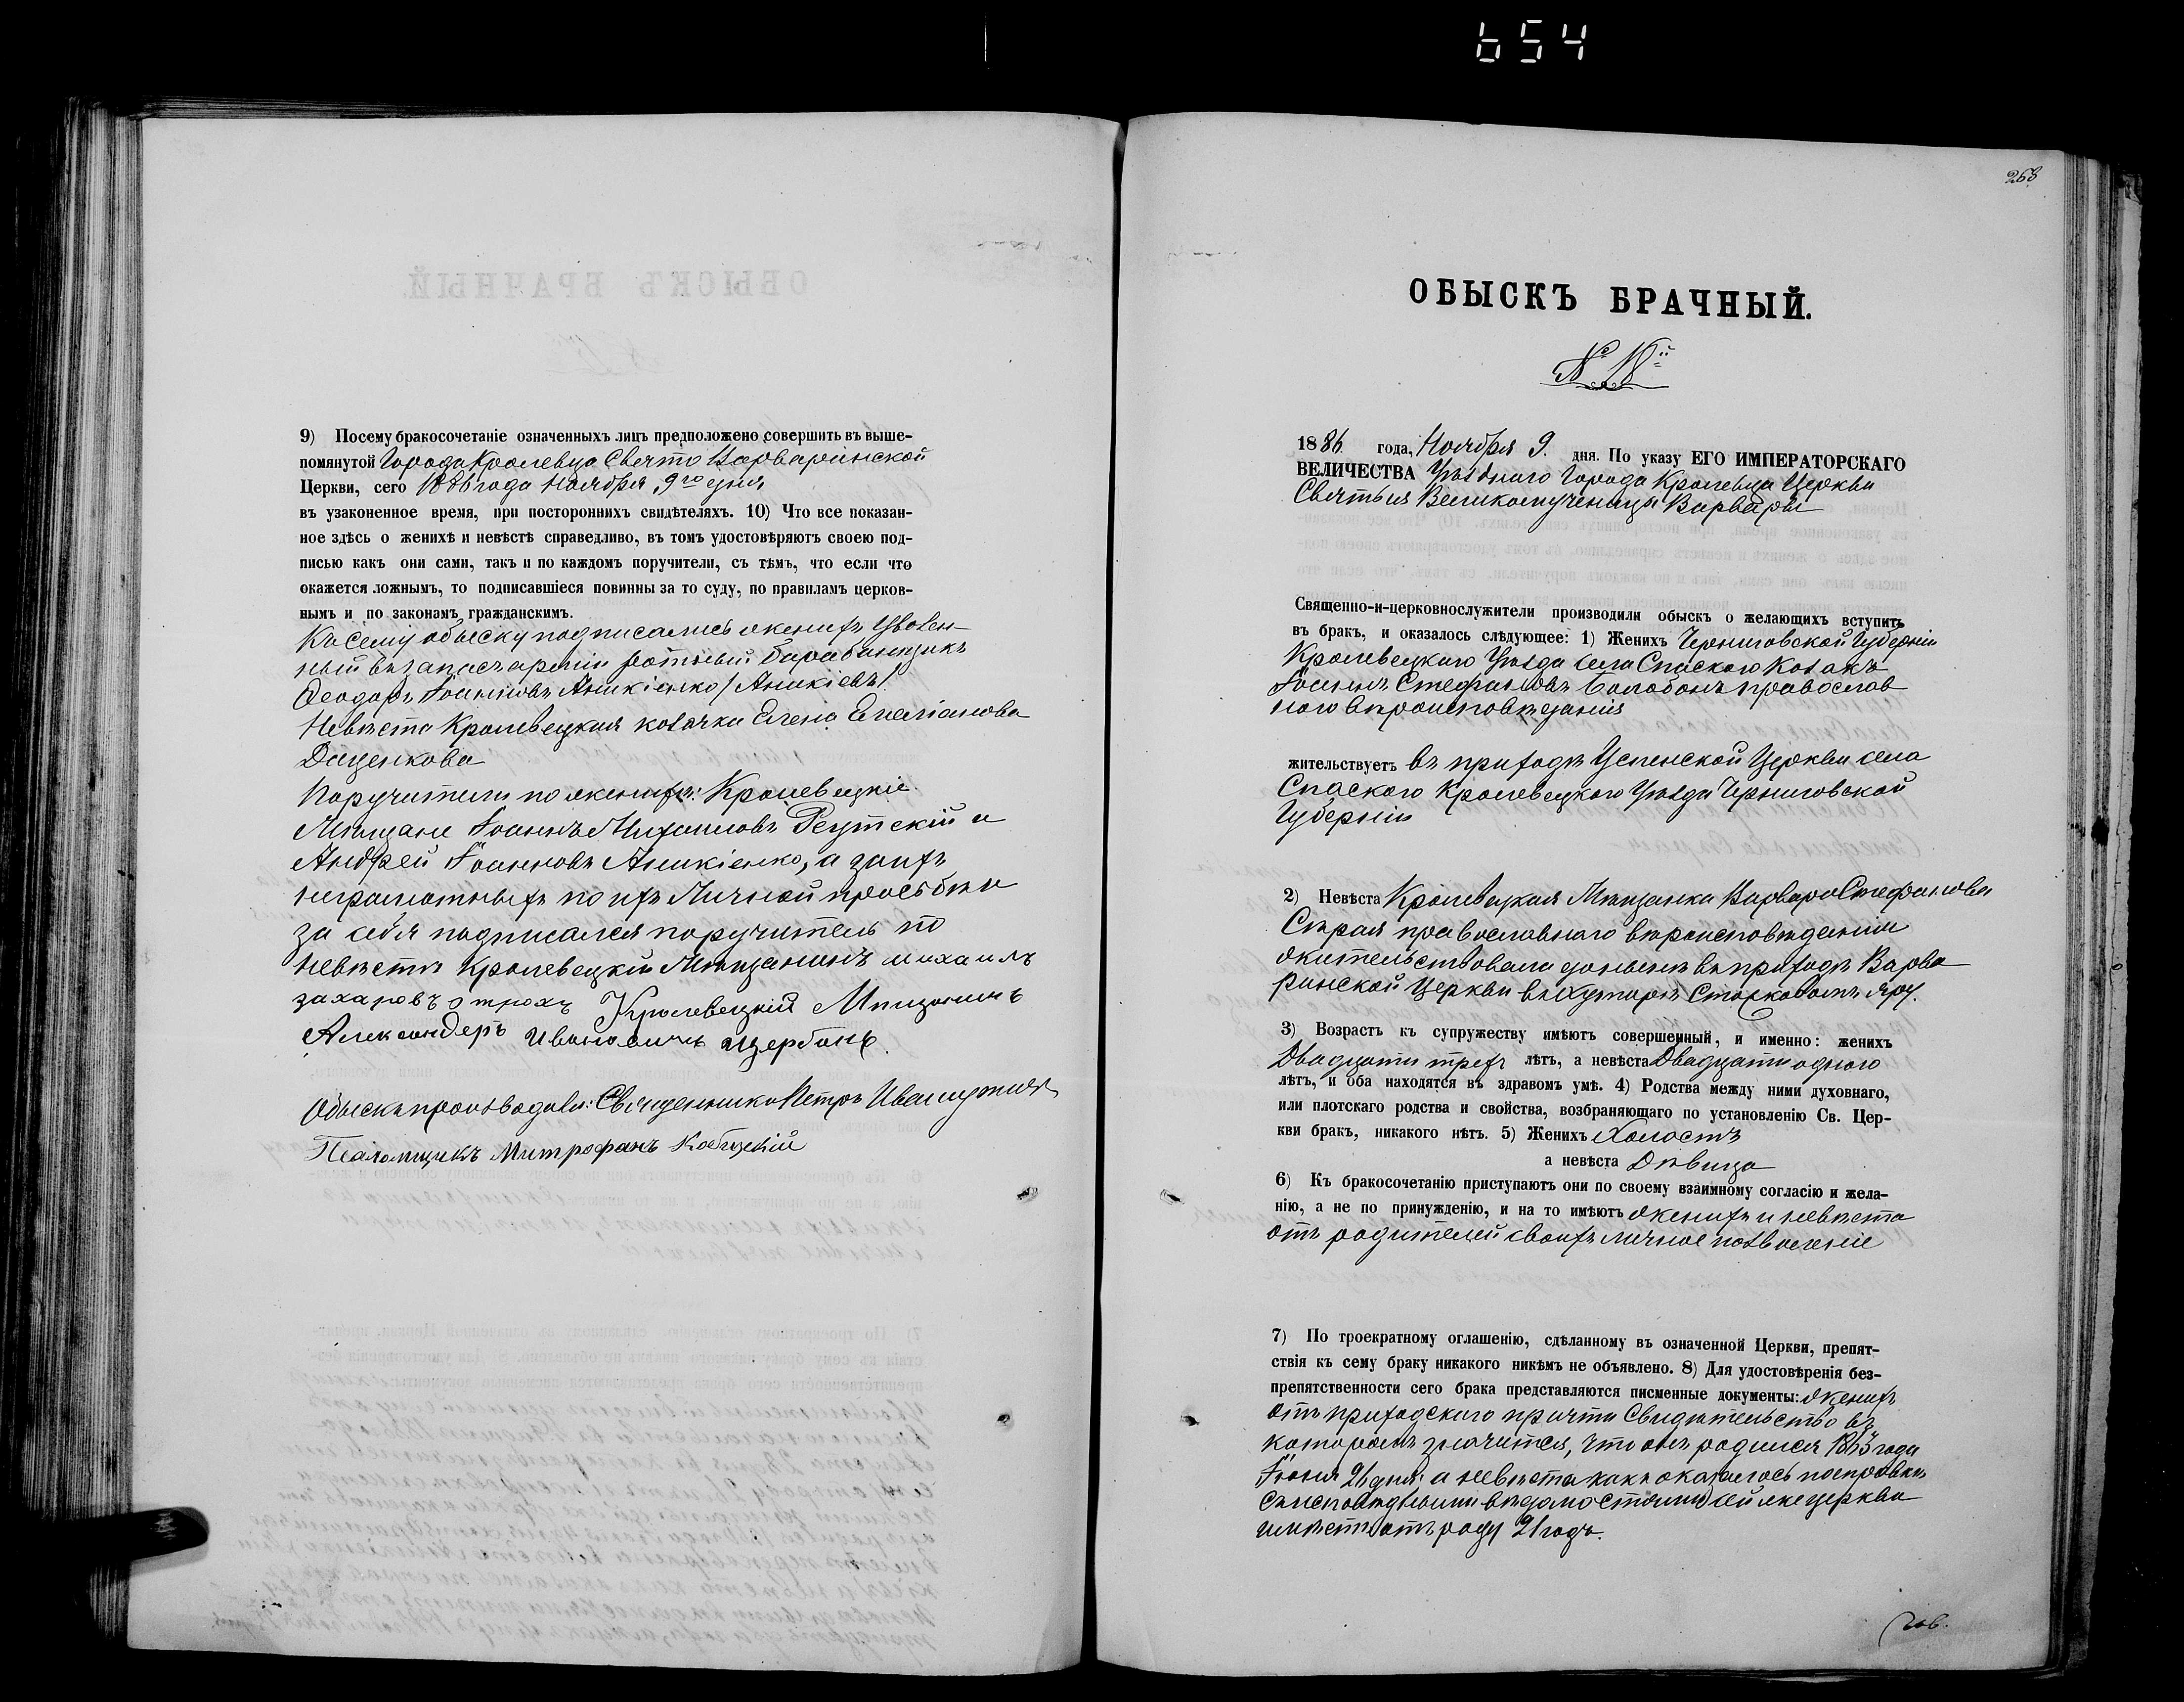 654
9) Посему бракосочетаніе означенныхъ лицъ предположено совершить въ выше-
помянутой Города Кролевца Свято Варваринской
Церкви, сего 1886 года Ноября, 9го дня
въ узаконенное время, при постороннихъ свидѣтеляхъ. 10) Что все показан-
ное здѣсь о женихѣ и невѣстѣ справедливо, въ томъ удостовѣряютъ своею под-
писью какъ они сами, такъ и по каждомъ поручители, съ тѣмъ, что если что
окажется ложнымъ, то подписавшіеся повинны за то суду, по правиламъ церков-
нымъ и по законамъ гражданскимъ.
Къ сему обыску подписались женихъ Уволен-
ный въ запасъ арміи ротный барабанщикъ
Ѳеодоръ Іоанновъ Аникіенко /Аникіевъ/
Невѣста Кролевецкая козачка Елена Емеліанова
Даценкова
Поручители по женихѣ: Кролевецкіе
Мѣщане Іоаннъ Михаиловъ Реутскій и
Андрей Іоанновъ Аникіенко, а за ихъ
неграмотныхъ по ихъ личной просьбѣ и
за себя подписался поручитель по
невѣстѣ Кролевецкій Мѣщанинъ михаилъ
захаровъ Кролевецкій Мѣщанинъ
Александеръ Ивановичъ щербанъ
Обыскъ производили: Священникъ Петръ
Псаломщикъ Митрофанъ
268
ОБЫСКЪ БРАЧНЫЙ.
№ 18й
1886 года, Ноября 9. дня. По указу ЕГО ИМПЕРАТОРСКАГО
ВЕЛИЧЕСТВА Уѣзднаго Города Кролевца Церкви
Святыя Великомученицы Варвары
Священно-и-церковнослужители производили обыскъ о желающихъ вступить
въ бракъ, и оказалось слѣдующее: 1) Женихъ Черниговской Губерніи
Кролевецкаго Уѣзда села Спаскаго Козакъ
Іоаннъ Стефановъ Балабанъ православ
наго вѣроисповѣданія
жительствуетъ въ приходѣ Успенской Церкви села
Спаского Кролевецкого Уѣзда Черниговской
Губерніи
2) Невѣста Кролевецкая Мѣщанка Варвара Стефанова
Сѣрая православнаго вѣроисповѣданія
жительствовала донынѣ въ приходѣ Варва
ринской Церкви въ Хуторѣ Старковомъ Яру.
3) Возрастъ къ супружеству имѣютъ совершенный, и именно: женихъ
Двадцати трехъ лѣтъ, а невѣста Двадцати одного
лѣтъ, и оба находятся въ здравомъ умѣ. 4) Родства между ними духовнаго,
или плотскаго родства и свойства, возбраняющаго по установленію Св. Цер-
кви бракъ, никакого нѣтъ. 5) Женихъ Холостъ
а невѣста Дѣвица
6) Къ бракосочетанію приступаютъ они по своему взаимному согласію и жела-
нію, а не по принужденію, и на то имѣютъ женихъ и невѣста
отъ родителей своихъ личное позволеніе
7) По троекратному оглашенію, сдѣланному въ означенной Церкви, препят-
ствія къ сему браку никакого никѣмъ не объявлено. 8) Для удостовѣренія без-
препятственности сего брака представляются писменные документы: женихъ
отъ приходскаго причта Свидѣтельство въ
которомъ значится, что онъ родился 1863 года
Іюня 21 дня: а невѣста какъ оказалось по справкѣ
съ исповѣдными вѣдомостями сей же церкви
имѣетъ отъ роду 21 годъ.